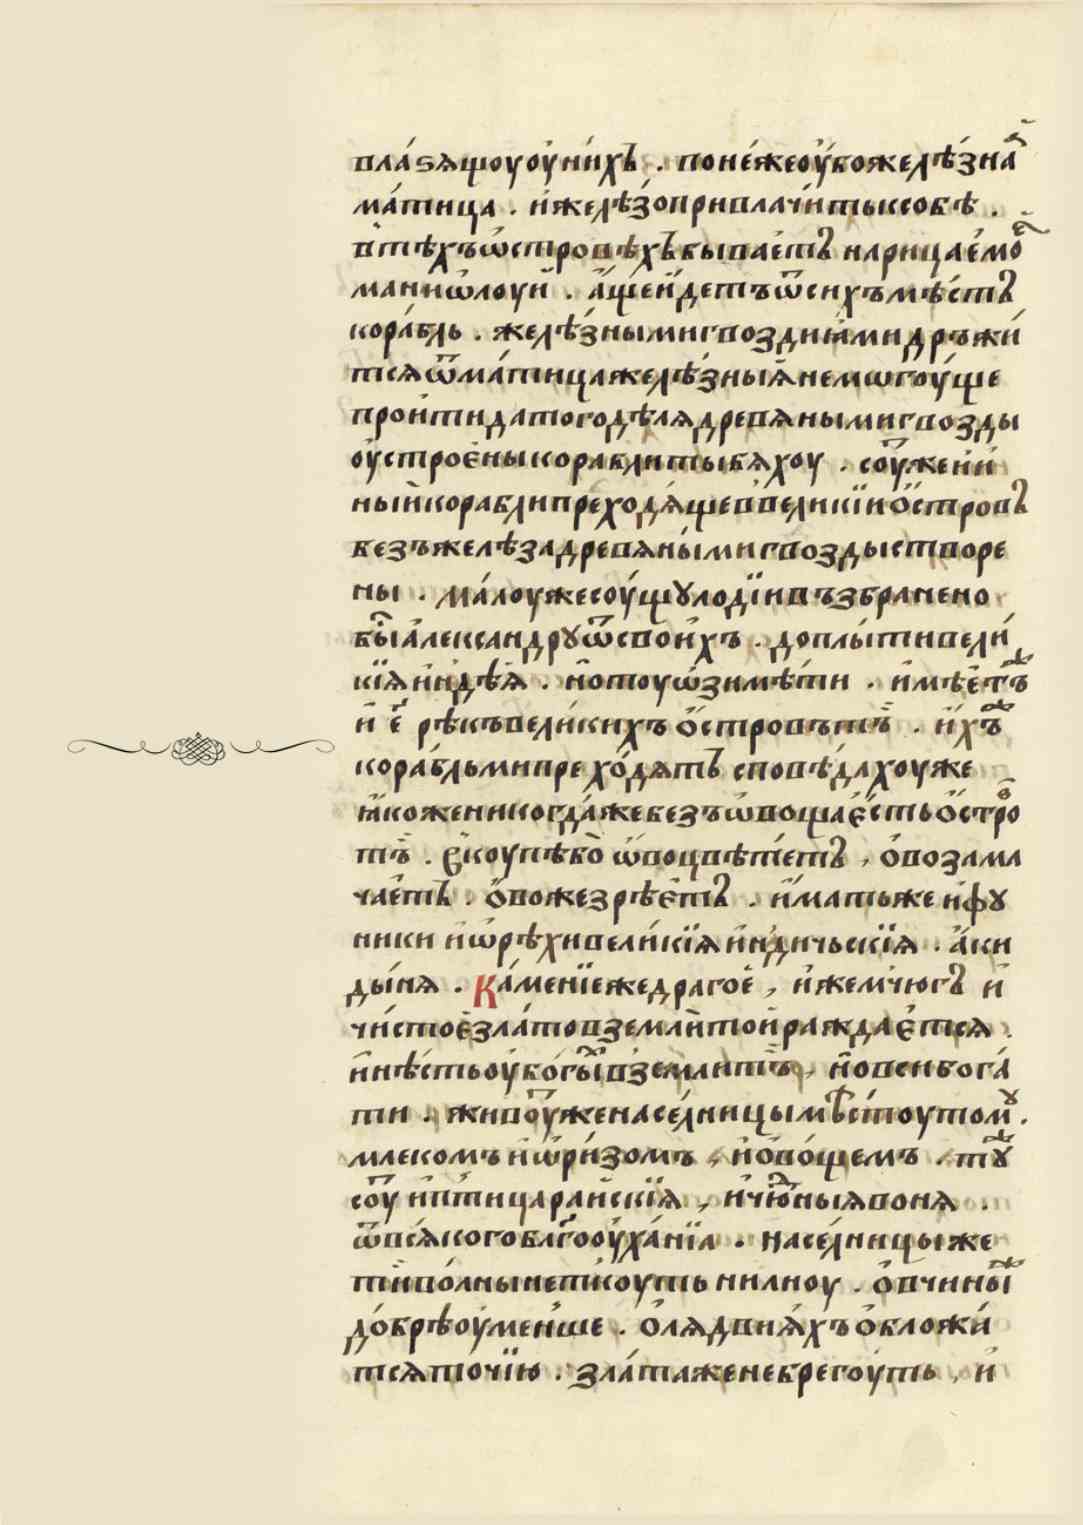 вла́ѕѧщоуоу҆ни́хъ . поне́жеоу҆божелѣ́зна҆ⷭ
ма́тица . и҆желѣ́зопривлачи́тыксобѣ .
в̾тѣ́хъѡ҆стровѣ́хъбыва́етъ нарица́емоⷨ
маниѡ҆лоуи҆ . а҆́щеи҆детъѿсихъмѣ́стъ
кора́бль . желѣ́знымигвоздиѧ́мидръжи́
тсѧѿма́тицажелѣ́зныѧ҆немѡгоу́ще
прои҆тидатогодѣ́лѧдревѧнымигвозды
оу҆строе́ныкораблитыбѧхоу . соу́жеи҆и҆
ны́и҆кораблипреходѧ́щеввели́кїио҆́стровъ
безъжелѣ́задревѧны́мигвоздысътворе
ны . ма́лоужесоу́щꙋлодїи҆въ̾збранено
быⷭ҇а҆лекса́ндрꙋѿсвои́хъ . доплы́тивели́
кїѧи҆ндѣ́ѧ . и҆отоуѡ҆́зимѣ́ти . и҆мѣ́етⷤъ
и҆ е҃ рѣ́къвели́кихъ о҆́стровътъ . и҆́хⷤъ
кора́бльмипре хо́дѧтъ сповѣ́дахоуже
ꙗ҆́коженикогда́жебезъѡ҆воща є҆́стьо҆́строⷡ
тъ . Є҆коупѣ́бо ѡ҆воцвѣте́тъ , о҆́возама
ча́етъ . о҆́вожезрѣ́єтъ . и҆́матьже и҆фꙋ
ники и҆ѡрѣ́хивели́кїѧи҆нди́чьскїѧ . а҆́ки
ды́нѧ . Ка́менїежедраго́е , и҆́жемчюгъ и҆
чи́стоєзла́товземлито́и҆ражда́єтсѧ .
и҆нѣ́стьоубо́гыⷯвземлитъ , и҆овсибога́
ти . живоу́женасе́лницымѣ́стоутомꙋ .
млекомъи҆ѡ҆ри́зомъ , и҆ово́щемъ . тꙋⷤ
соу́ и҆пти́цара́и҆скїѧ , и҆чю́ⷣныѧвонѧ .
ѿвсѧ́когобл҃гооуха́нїа . насе́лницыже
ти҆во́лныне́пекоуть нилноу . о҆вчины́ⷤ
до́брѣоу҆ме́нше . о҆лѧдвиѧ́хъо҆бложи́
тсѧточїю . зла́тажене́брегоу́ть , и҆